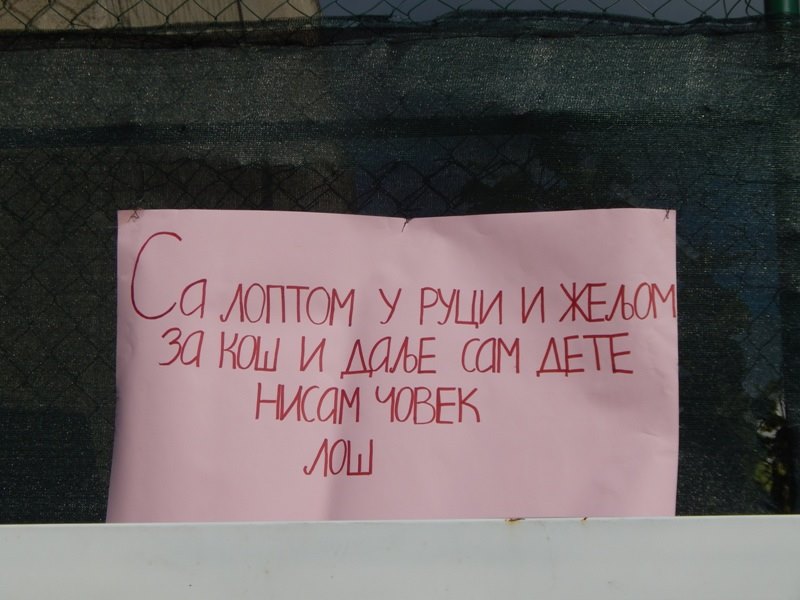 Са ЛОПТОМ У РУЦИ И ЖЕЉОМ
ЗА КОШ И ДАЉЕ САМ ДЕТЕ
НИСАМ ЧОВЕК
ЛОШ